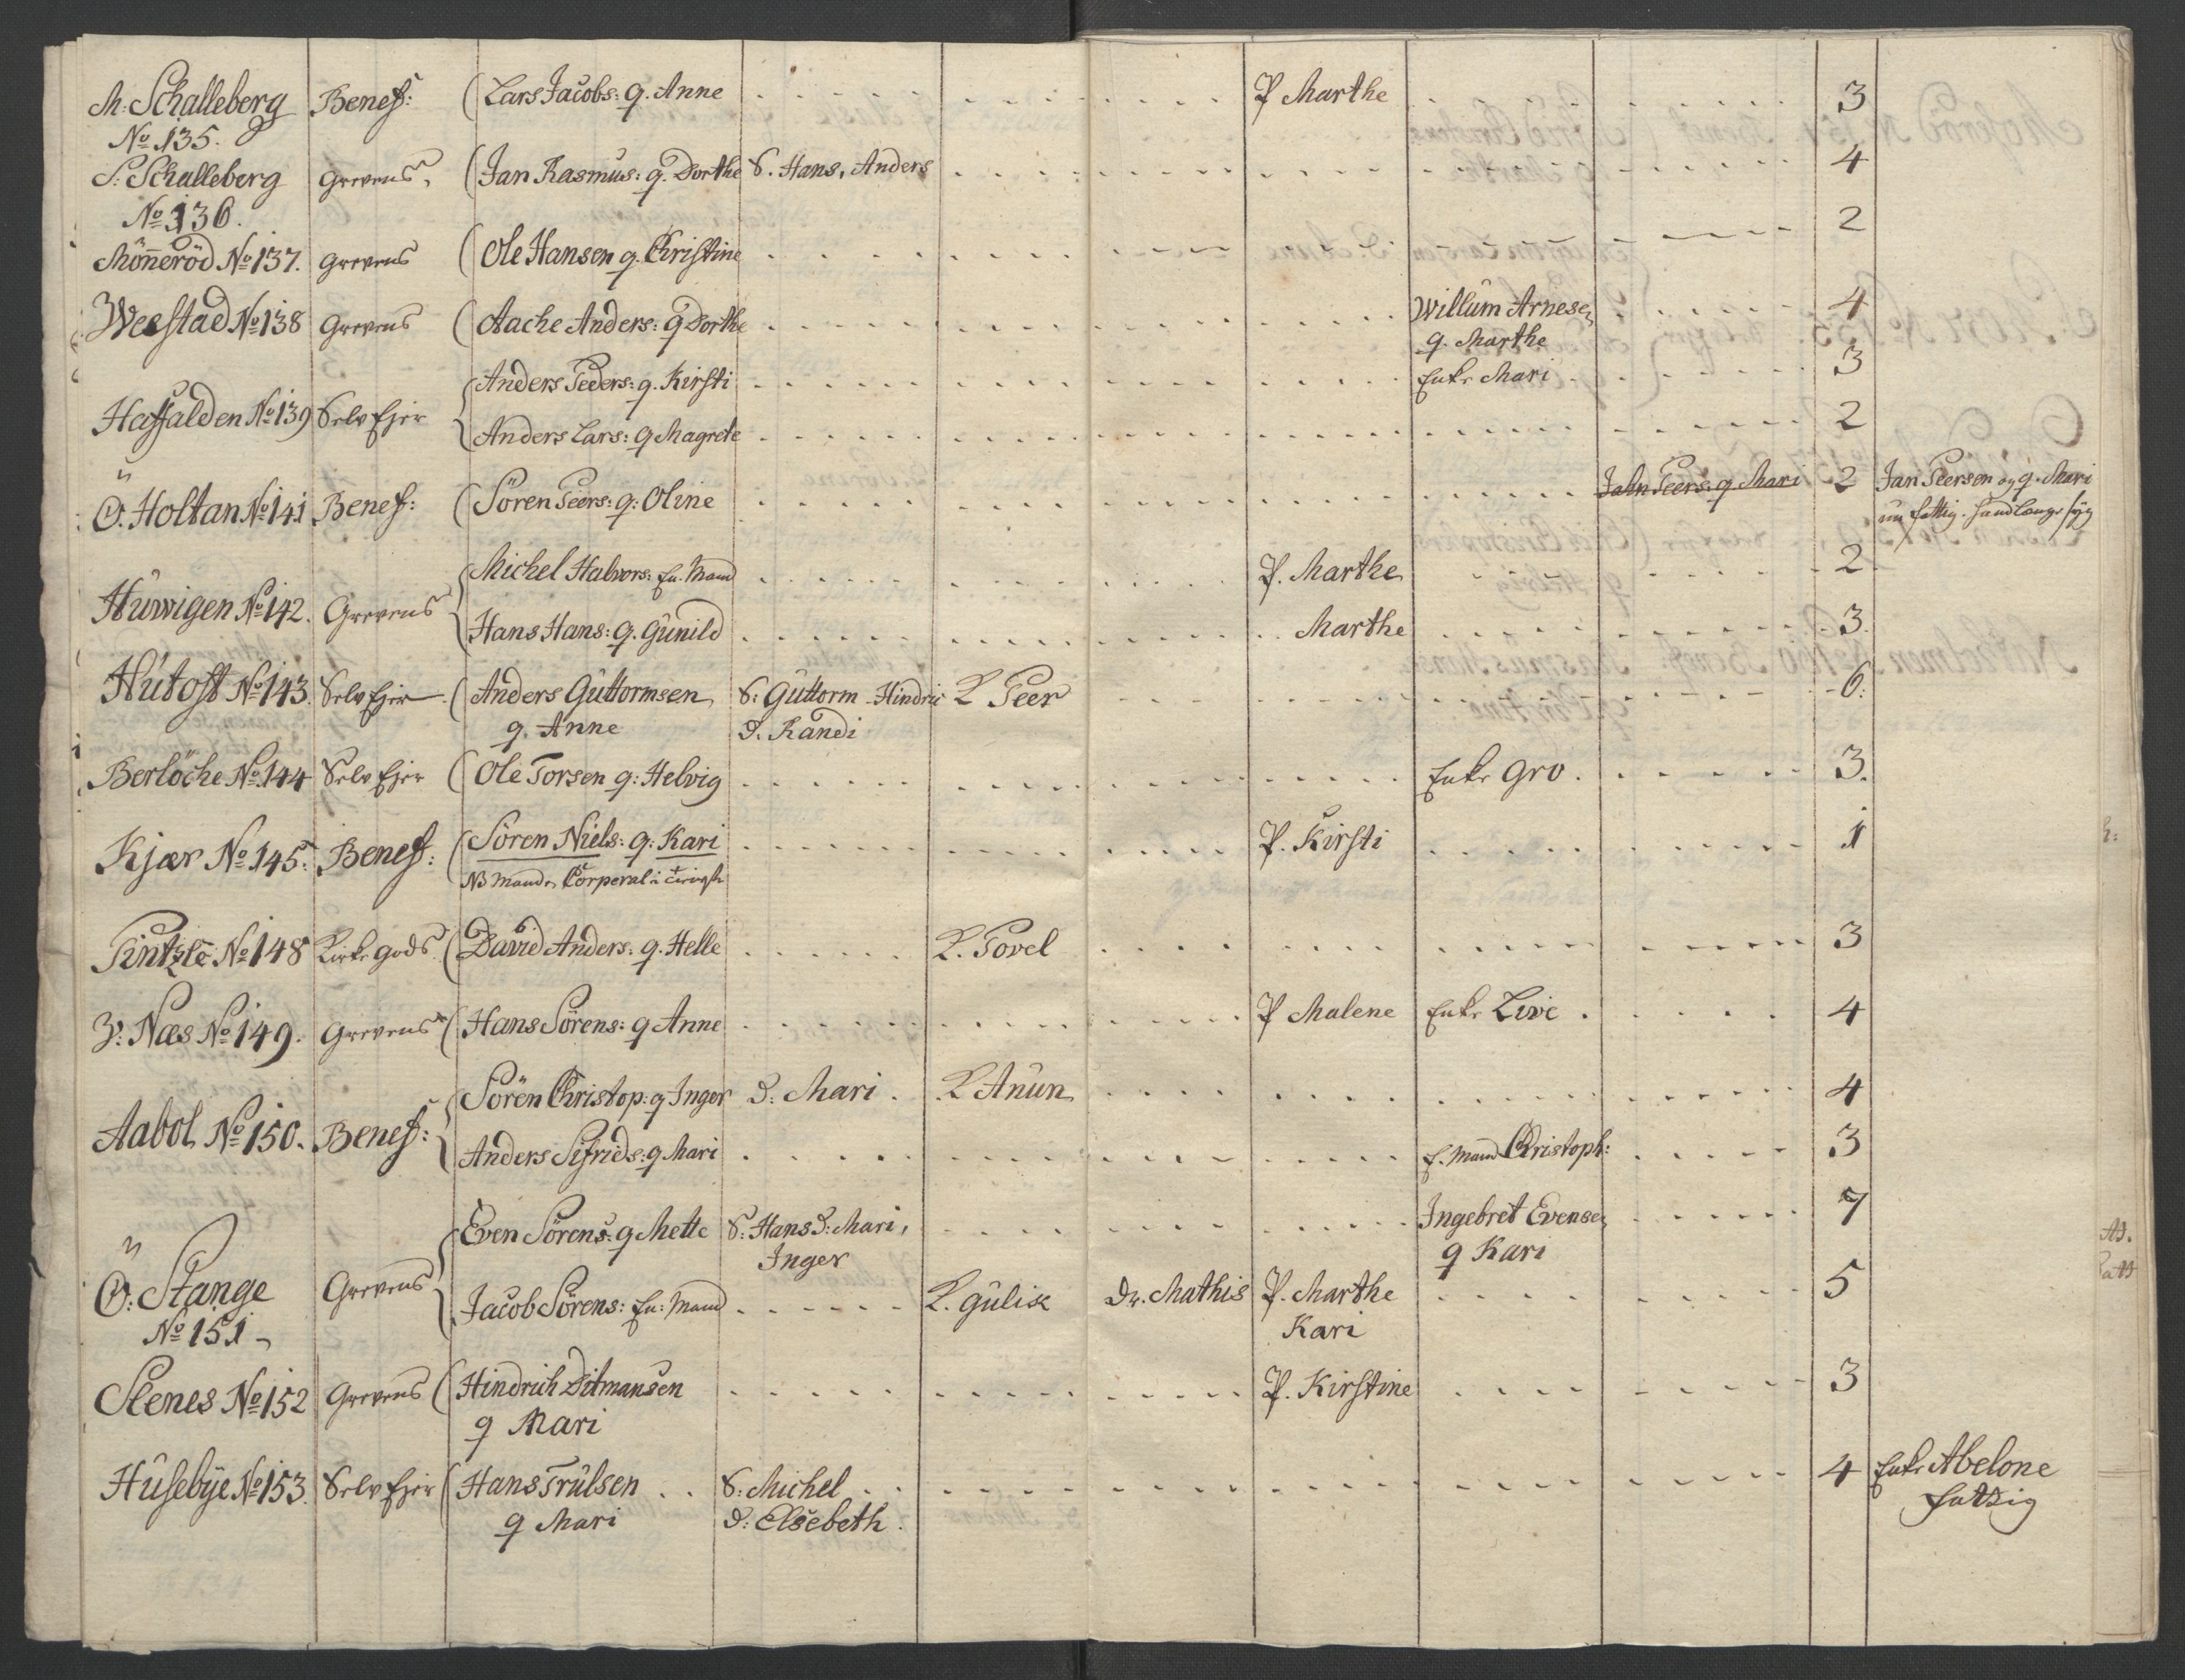 M: Schalleberg Benef: ( Lars Jacobs: q. Anne P Marthe 3
No 135.
S: Schalleberg Grevens ( Jan Rasmus: q. Dorthe S. Hans, Anders 4
No 136.
Mönneröd No 137. Grevens ( Ole Hansen q. Christine 2
Weestad No 138 Grevens ( Aache Anders: q Dorthe Willum Arnesen 4
q. Marthe
Anders Peders: q. Kirsti Enke Mari 3
Hassalden No 139 Selv Ejer
Anders Lars: q Magrete 2
Ö. Holtan No 141 Benef: ( Sören Peers: q: Oline Jahn Peers: q Mari 2 Jan Peersen og q. Mari
fattig
Michel Halvors: En. Mand P. Marthe 2
Huwigen No 142. Grevens
Hans Hans: q. Gunild Marthe 3.
Hutost No 143. Selv Ejer ( Anders Guttormsen S: Guttorm Hindric L Peer 6.
q. Anne D. Randi
Berlöche No 144 Selv Ejer ( Ole Torsen q: Helvig Enke Gro 3.
Kjær No 145. Benef: ( Sören Niels: q: Kari P. Kirsti 1
NB Manden Corperal
No 148 Kirke gods ( David Anders: q. Helle L. Povel 3
Y: Næs No 149. Grevens ( Hans Sörens: q Anne P Malene Enke Live 4
Sören Christop: q Inger D: Mari L Anun 4
Aabol No 150. Benef:
Anders Sifrids: q Mari E. Mand Christoph: 3
Even Sörens: q Mette S: Hans D: Mari, Ingebret Evensen 7
Inger q Kari
Ö: Stange Grevens
Jacob Sörens: En: Mand L. Gulik Dr. Mathis P. Marthe 5
No 151 Kari
Stenes No 152 Grevens ( Hindrich Ditmansen P. Kirstine 3
q Mari
Husebye No 153. Selv Ejer ( Hans Trulsen S: Michel 4 Enke Abelone
q Mari D: Elsebeth fattig